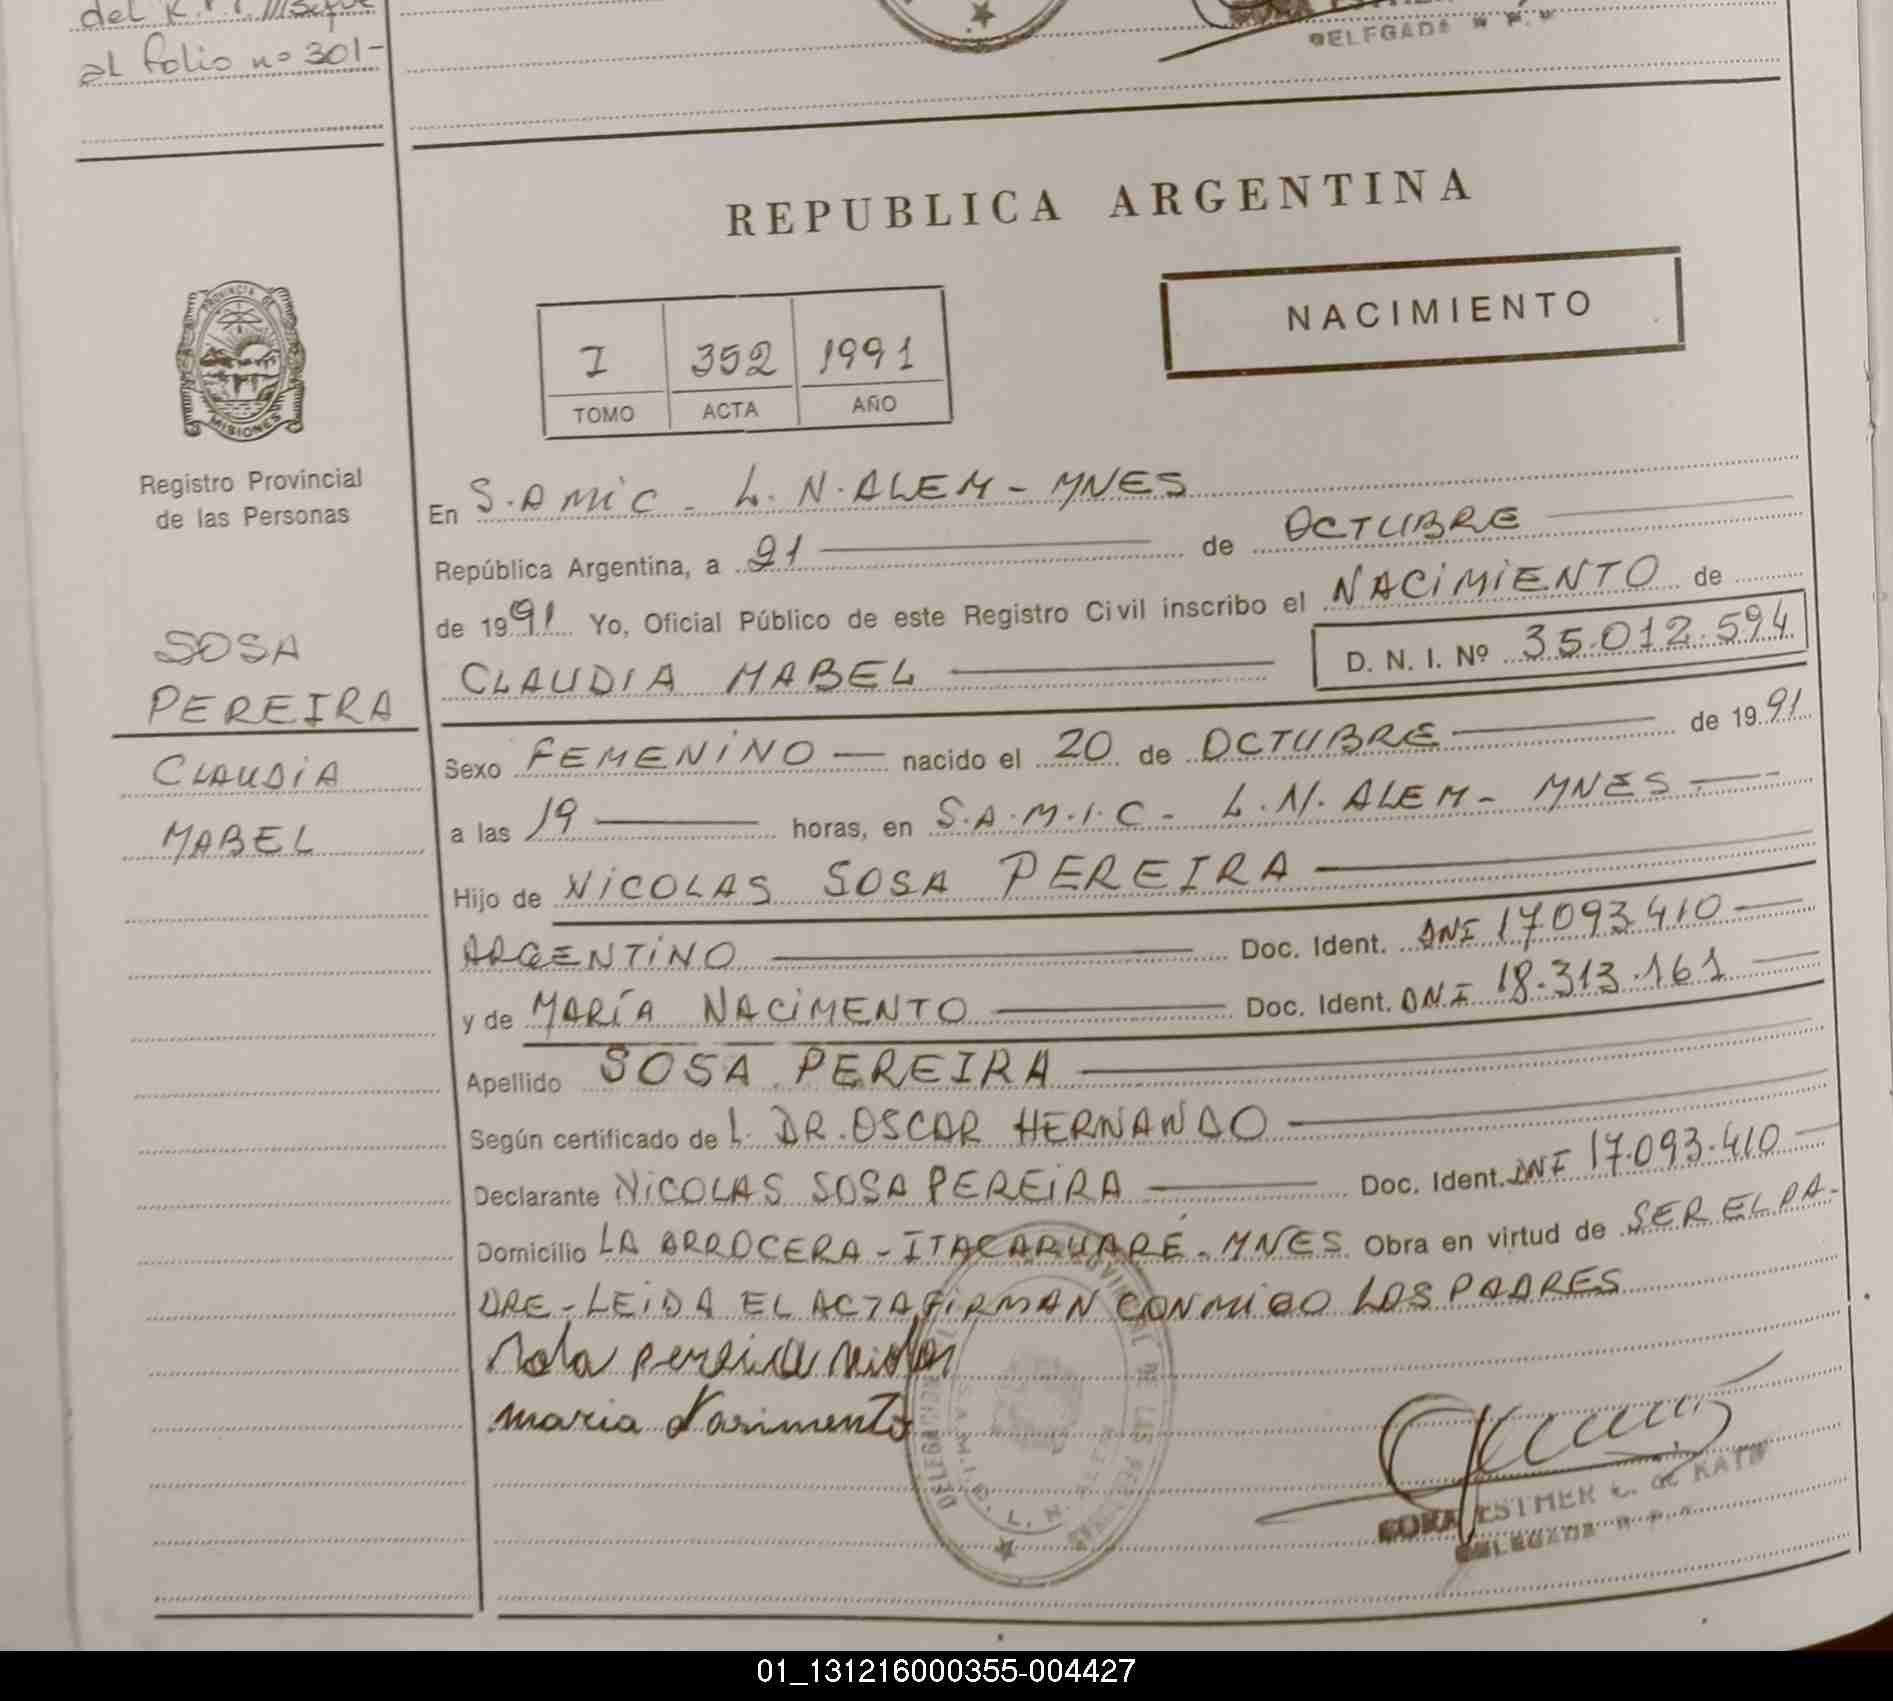 al folio nº 301-
DELEGADA R. P.
REPUBLICA ARGENTINA
NACIMIENTO
I 352 1991
TOMO ACTA AÑO
PROVINCIA DE
MISIONES
Registro Provincial
de las Personas
SOSA
PEREIRA
CLAUDIA
MABEL
En S.AMIC - L.N.ALEM - MNES
República Argentina, a 21 de OCTUBRE
de 1991 Yo, Oficial Público de este Registro Civil inscribo el NACIMIENTO de
CLAUDIA MABEL D. N. I. Nº 35.012.594
Sexo FEMENINO — nacido el 20 de OCTUBRE de 1991
a las 19 horas, en S.A.M.I.C - L.N. ALEM - MNES -
Hijo de NICOLAS SOSA PEREIRA
ARGENTINO Doc. Ident. DNI 17.093.410
y de MARÍA NACIMENTO Doc. Ident. DNI 18.313.161
Apellido SOSA PEREIRA
Según certificado de L. DR. OSCAR HERNANDO
Declarante NICOLAS SOSA PEREIRA Doc. Ident. DNI 17.093.410
Domicilio LA ARROCERA - ITACARUARÉ - MNES Obra en virtud de SER EL PA-
DRE - LEIDA EL ACTA FIRMAN CONMIGO LOS PADRES
maria Nacimento
ESTHER
DELEGADA R. P.
01_131216000355-004427